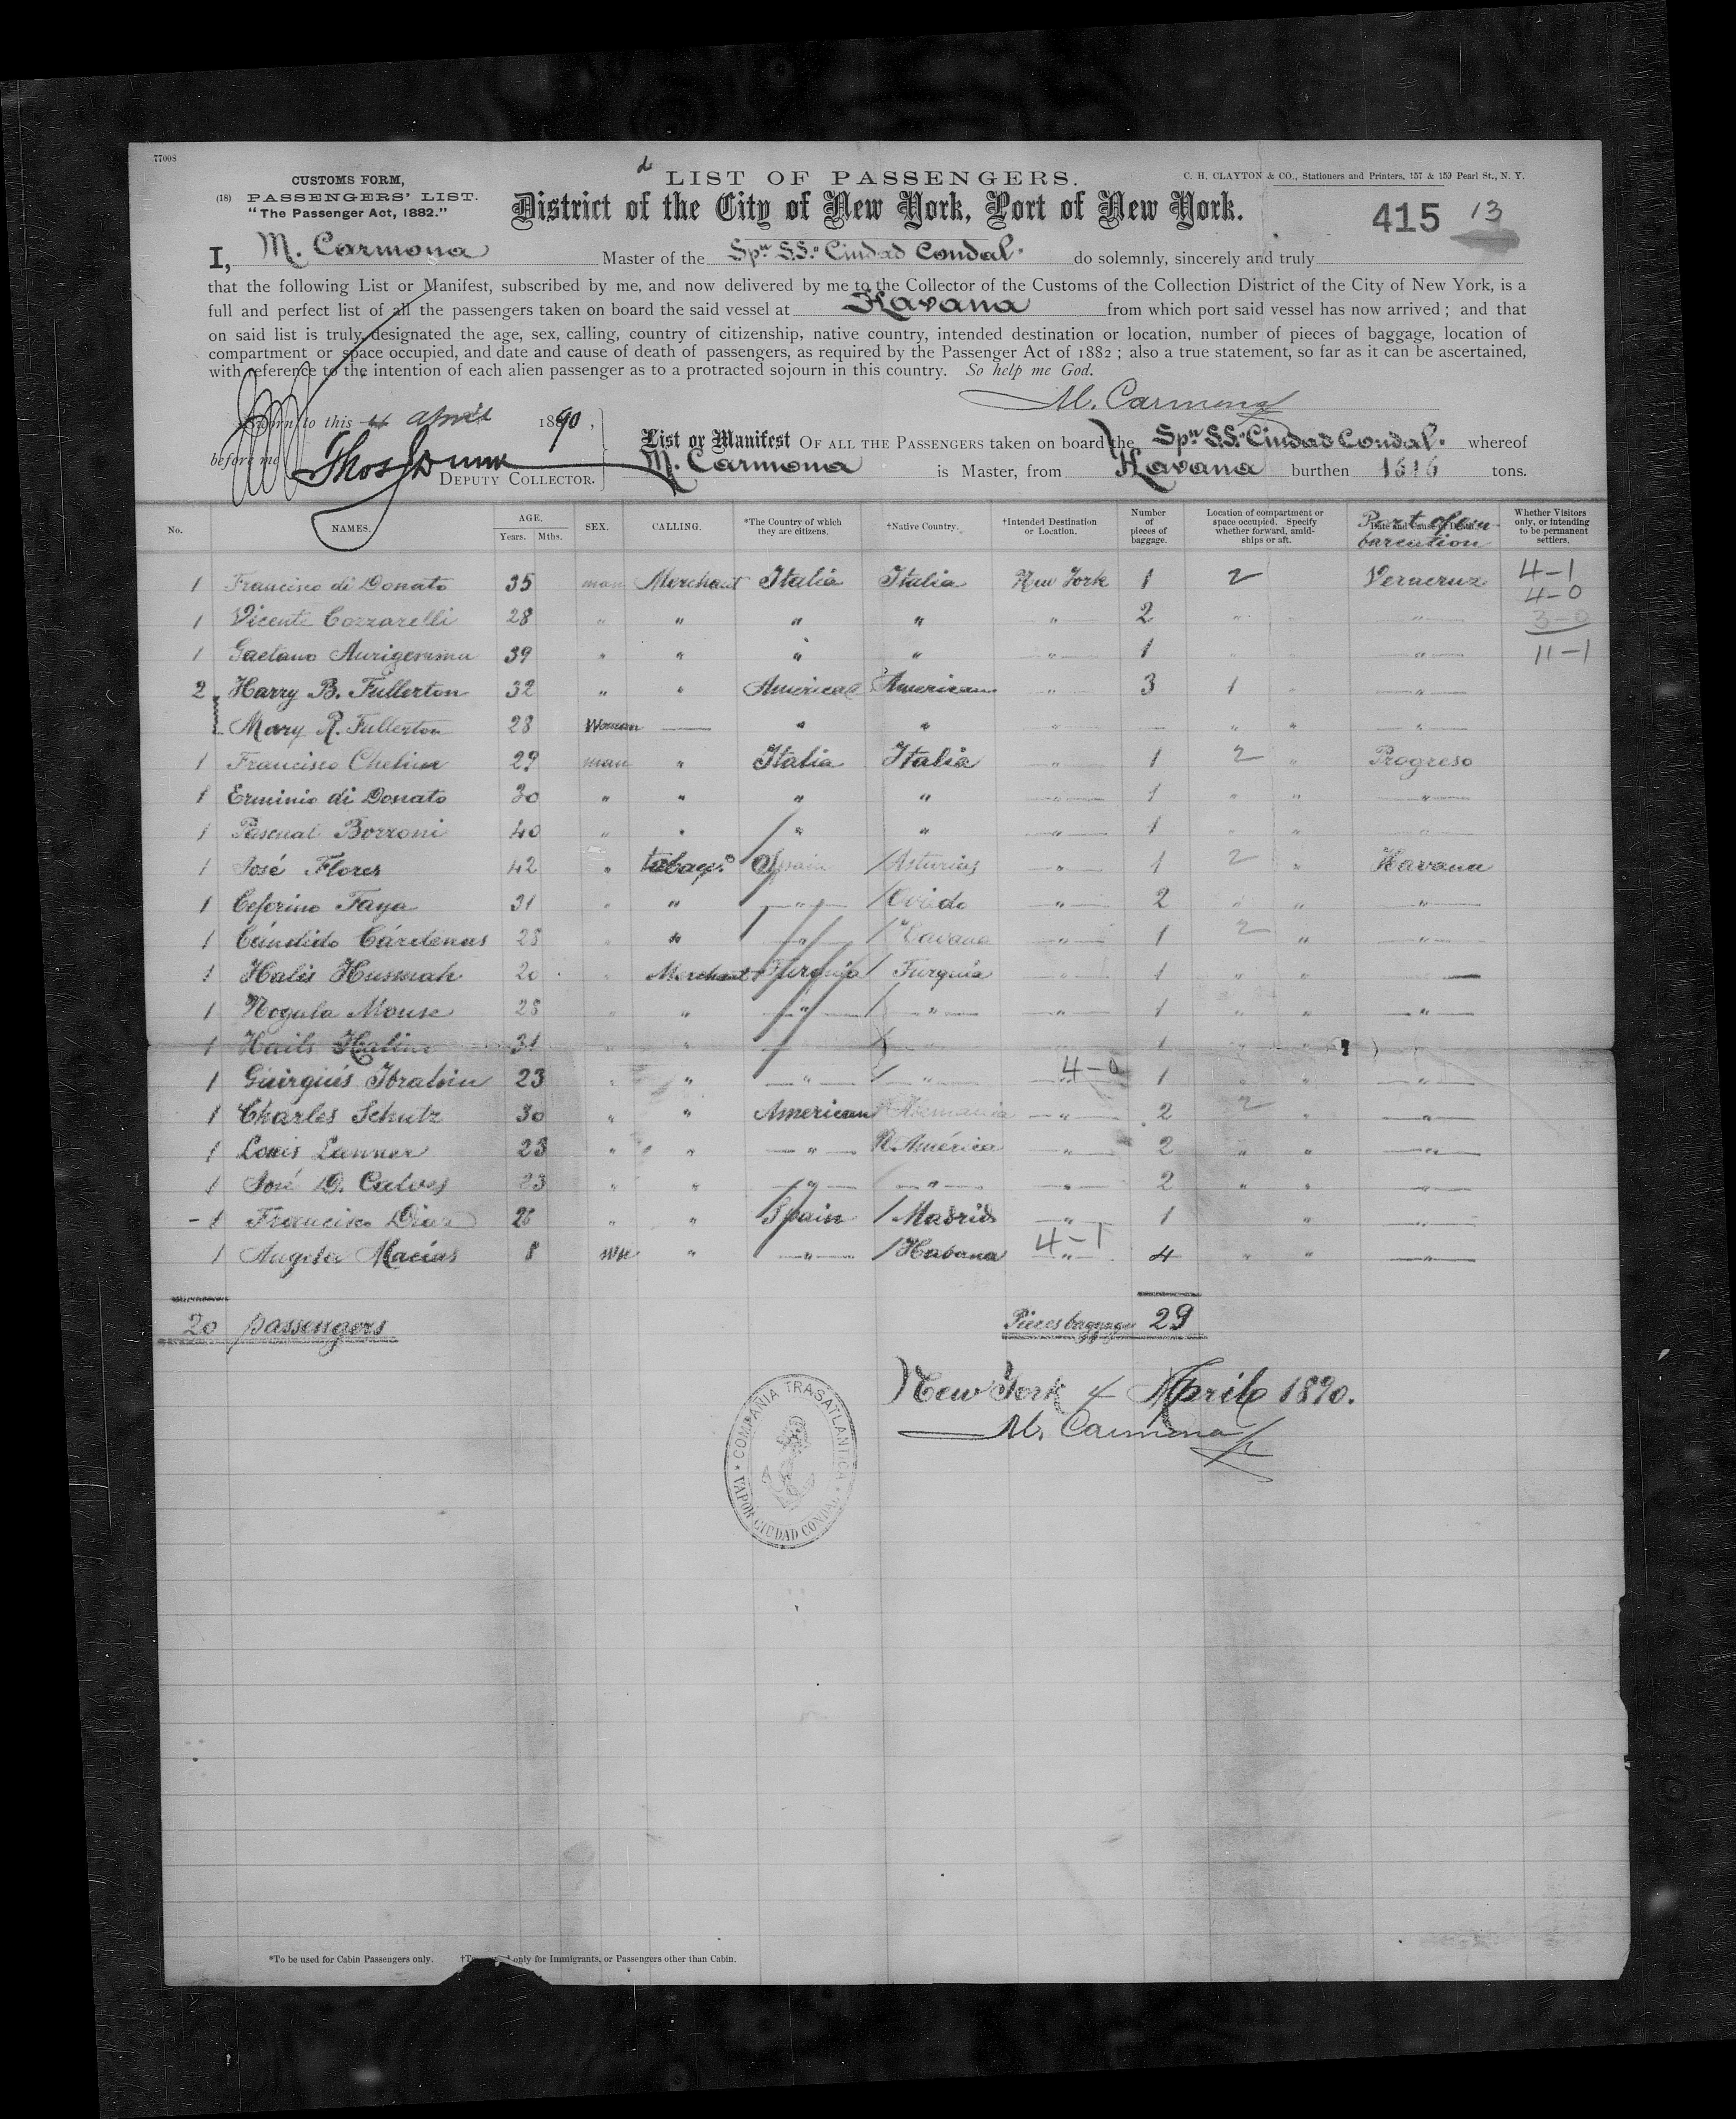 77008
CUSTOMS FORM,
(18) PASSENGERS' LIST.
"The Passenger Act, 1882."
LIST OF PASSENGERS.
C. H. CLAYTON & CO., Stationers and Printers, 157 & 159 Pearl St., N. Y.
District of the City of New York, Port of New York.
415 13
I, M. Carmona Master of the Spn. S.S. Ciudad Condal. do solemnly, sincerely and truly
that the following List or Manifest, subscribed by me, and now delivered by me to the Collector of the Customs of the Collection District of the City of New York, is a
full and perfect list of all the passengers taken on board the said vessel at Havana from which port said vessel has now arrived; and that
on said list is truly designated the age, sex, calling, country of citizenship, native country, intended destination or location, number of pieces of baggage, location of
compartment or space occupied, and date and cause of death of passengers, as required by the Passenger Act of 1882; also a true statement, so far as it can be ascertained,
with reference to the intention of each alien passenger as to a protracted sojourn in this country. So help me God.
M. Carmona
Sworn to this 4 April 1890,
before me Thos J Dunn
DEPUTY COLLECTOR.
List or Manifest OF ALL THE PASSENGERS taken on board the Spn. S.S. Ciudad Condal. whereof
M. Carmona is Master, from Havana burthen 1616 tons.
No. NAMES. AGE. Years. Mths. SEX. CALLING. *The Country of which they are citizens. †Native Country. †Intended Destination or Location. Number of pieces of baggage. Location of compartment or space occupied. Specify whether forward, amidships or aft. Date and Cause of Death. Port of embarcation Whether Visitors only, or intending to be permanent settlers.
1 Francisco di Donato 35 man Merchant Italia Italia New York 1 2 Veracruz 4-1
4-0
1 Vicente Cozzarelli 28 " " " " " 2 " " " 3-0
1 Gaetano Aurigemma 39 " " " " " 1 " " " 11-1
2 Harry B. Fullerton 32 " " American American " 3 1 " "
Mary R. Fullerton 28 Woman — " " " — " " "
1 Francisco 29 man " Italia Italia " 1 2 " Progreso
1 Erminio di Donato 30 " " " " " 1 " " "
1 Pascual Borroni 40 " " " " " 1 " " "
1 José Flores 42 " tabaqo. Spain / Asturias " 1 2 " Havana
1 Ceferino Faya 31 " " " / Oviedo " 2 " " "
1 Cándido Cárdenas 28 " " " / Havana " 1 2 " "
1 Halis Husmah 20 " Merchant Turquia / Turquia " 1 " " —
1 Nogala Mouse 28 " " " / " " 1 " " "
1 Hails Halin 31 " " " " " 1 " " "
1 Guirguis Ibrahin 23 " " " / " " 4-0 1 " " "
1 Charles Schutz 30 " " American Alemania " 2 2 " "
1 Louis Lanner 23 " " " N. América " 2 " " "
1 José D. Calves 23 " " " " " 2 " " "
- 1 Francisco Diaz 26 " " Spain / Madrid " 1 " "
1 Angela Macías 8 " " / Habana " 4-1 4 " " "
20 passengers
Pieces baggages 29
New York 4 Aprile 1890.
M. Carmona
COMPAÑIA TRASATLANTICA
VAPOR CIUDAD CONDAL
*To be used for Cabin Passengers only. only for Immigrants, or Passengers other than Cabin.